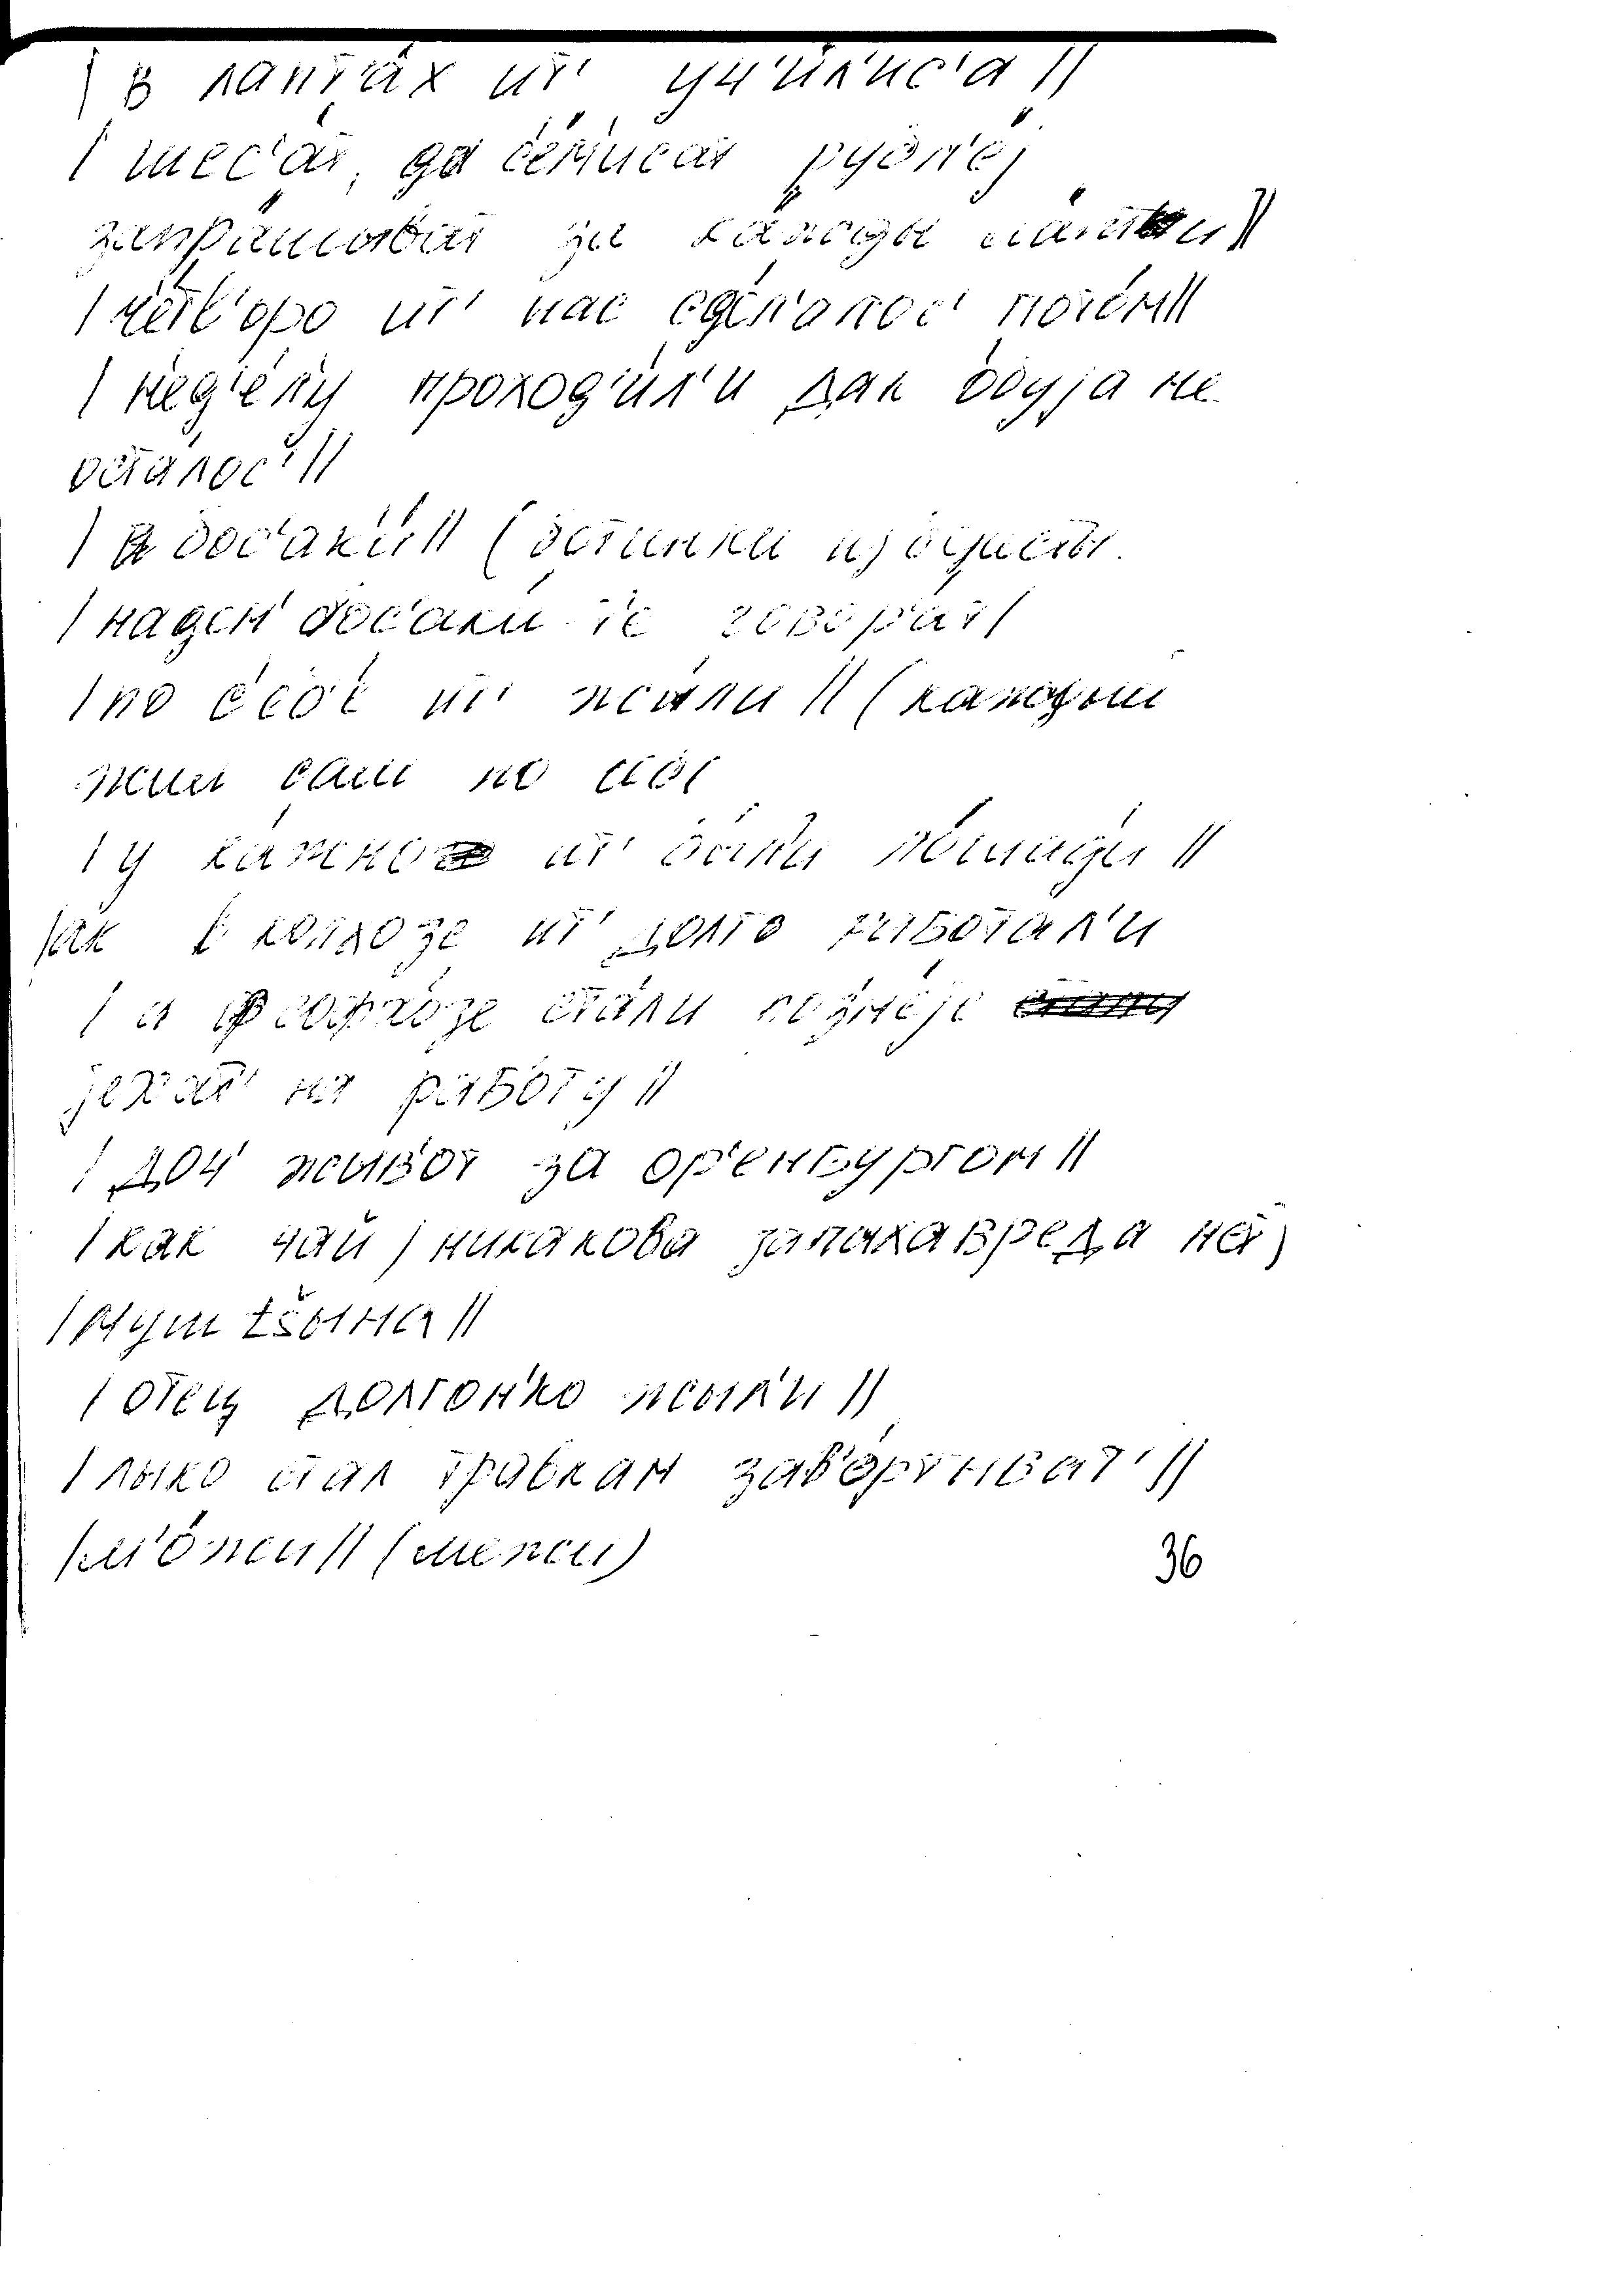 | в лапт'áх ит' уч'и́л'ис'а ||
| шес'áт, да се́м'исат рубл'е́j
запра́шыват за ка́жды ла́пти ||
| че́тв'оро ит' нас сд'е́л'алос' пото́м ||
| нед'е́лу проход'и́л'и дак обуjа не
оста́лос' ||
| а бос'аки́ || (ботинки изодраты
| наден' бос'аки́-те говор'ат |
| по себ'е́ ит' жы́ли || (каждый
жил сам по себе
| у кажно ит' бы́л'и ло́шад'и ||
| ак в колхозе ит' долго работал'и
| а фсофхо́зе ста́ли поздне́jе
jехат' на работу ||
| доч' жив'от за ор'енбургом ||
| как чай / никакова запаха вреда не́т )
| муш tšына ||
| отец долгон'ко жыл'и ||
| лыко стал травкам зав'о́ртыват' ||
| м'о́жи || (межи)
36